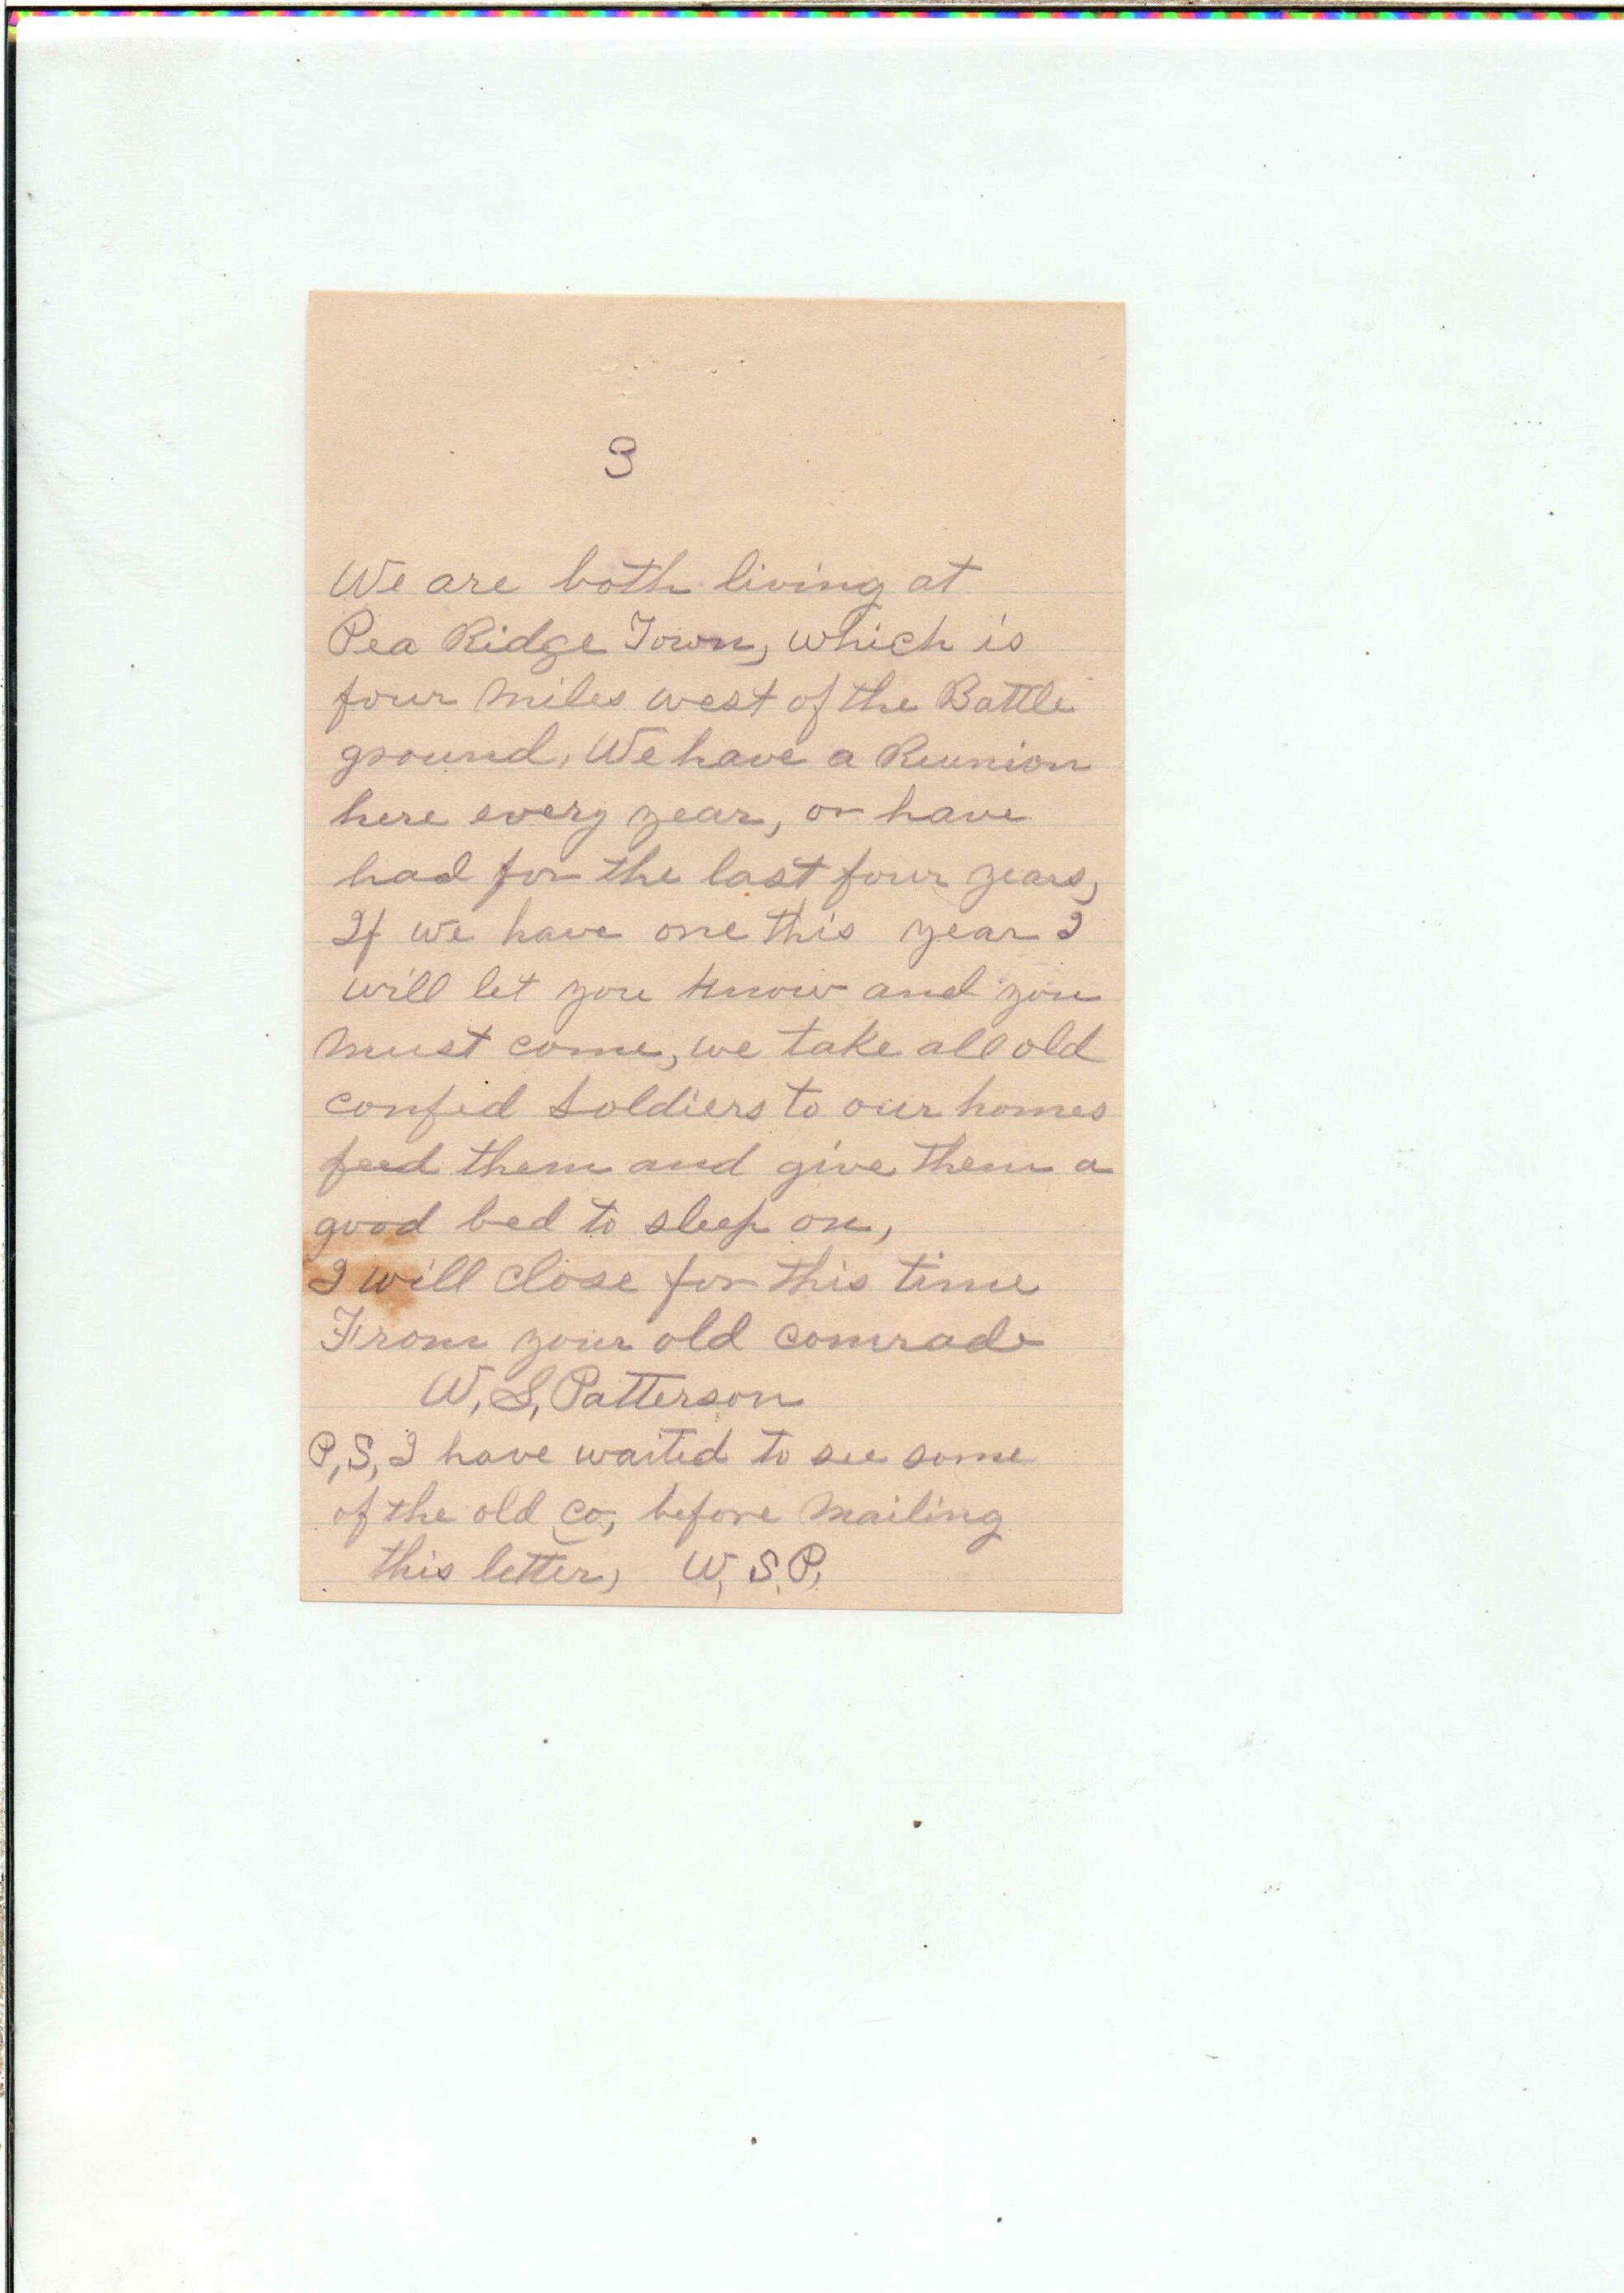 3
We are both living at
Pea Ridge Town, which is
four miles west of the Battle
ground, We have a Reunion
here every year, or have
had for the last four years,
If we have one this year I
will let you know and you
must come, we take all old
confed soldiers to our homes
feed them and give them a
good bed to sleep on,
I will close for this time
From your old comrade
W, S, Patterson
P, S, I have waited to see some
of the old co, before mailing
this letter, W, S, P,